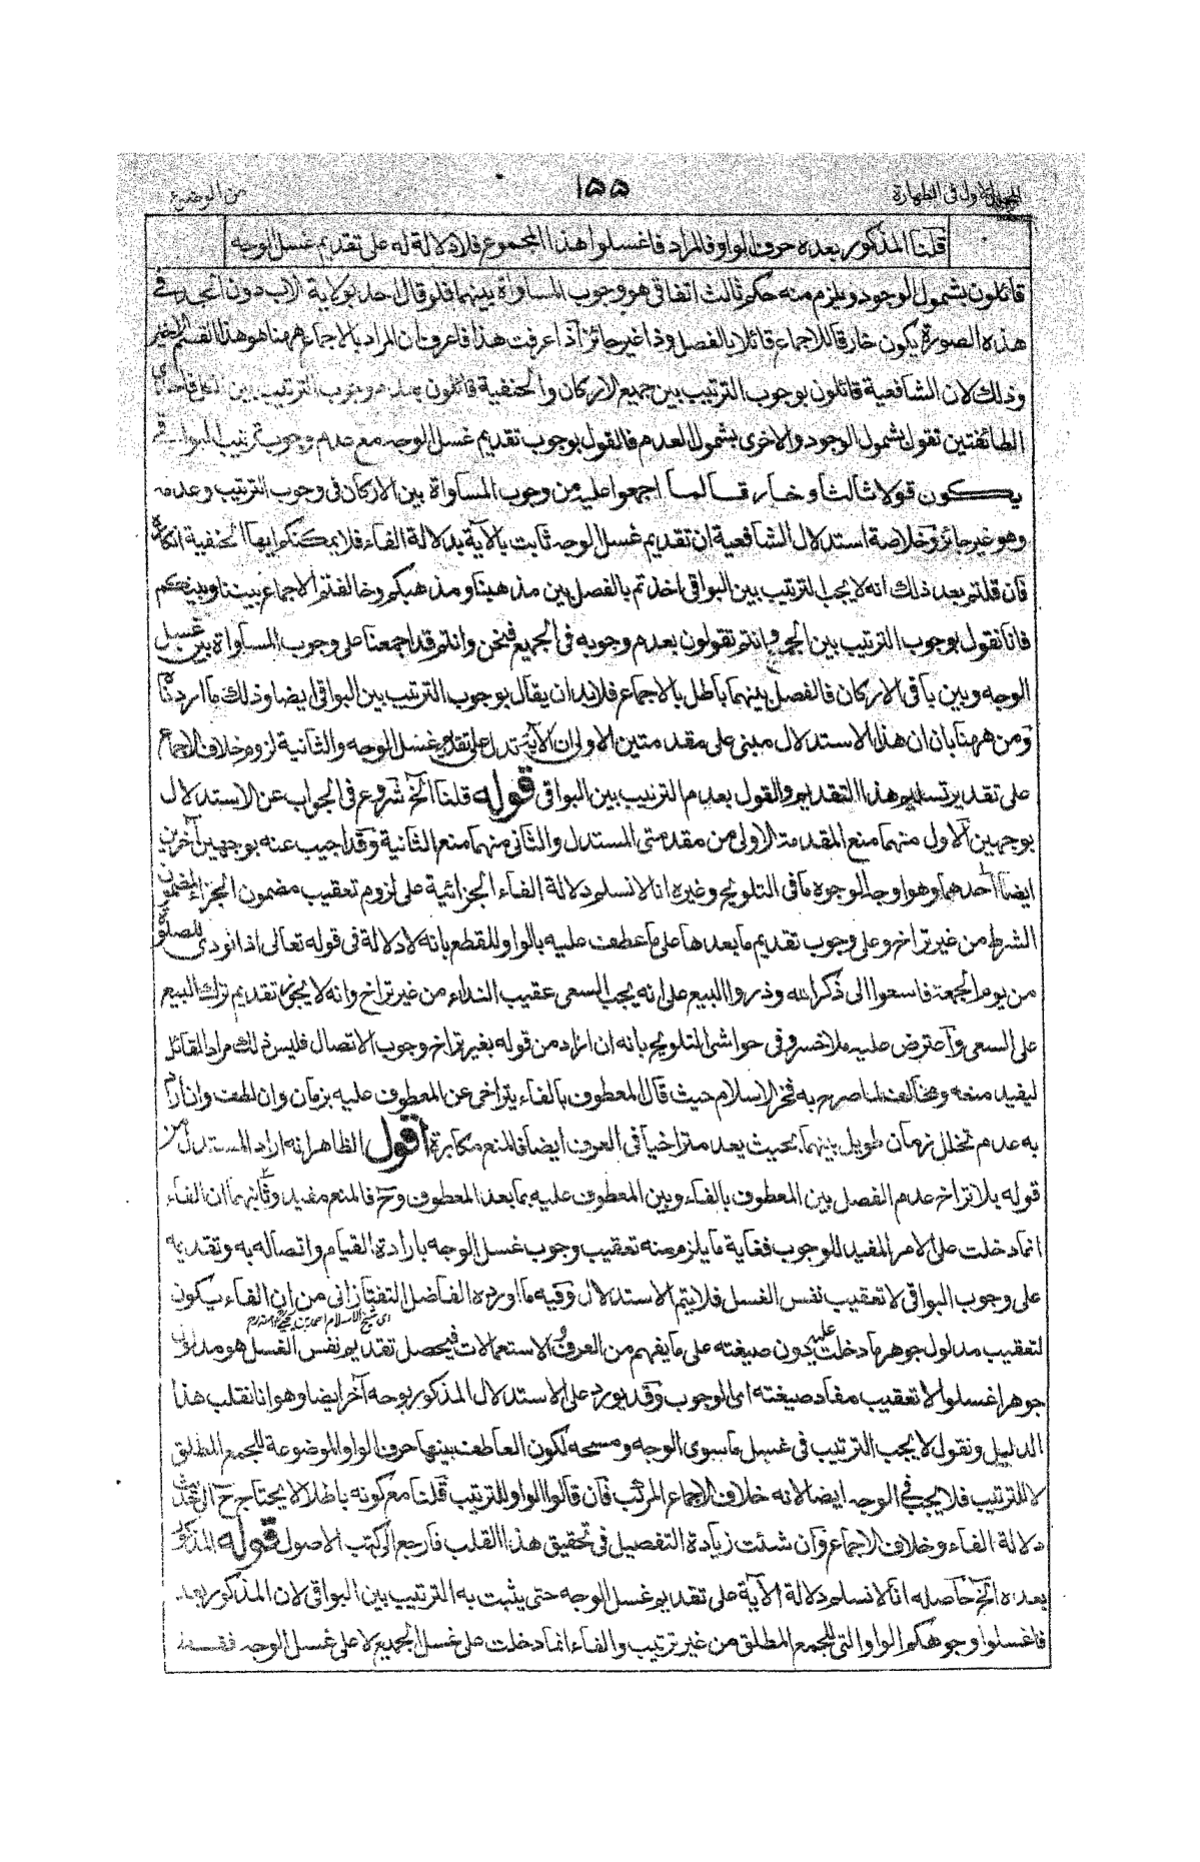 المجلد الاول فى الطهارة
١٥٥
من الوضوء
قلنا المذكور بعده حرف الواو فالمراد فاغسلوا هذا المجموع فلا دلالة له على تقديم غسل الوجه
قائلون بشمول الوجود ويلزم منه حكم ثالث اتفاقى هو وجوب المساواة بينهما فلو قال احد بولاية الاب دون الجد فى
هذه الصورة يكون خارقا للاجماع قائلا بالفصل وذا غير جائز اذا عرفت هذا فاعرف ان المراد بالاجماع ههنا هو هذا القسم الاخير
وذلك لان الشافعية قائلون بوجوب الترتيب بين جميع الاركان والحنفية قائلون بعدم وجوب الترتيب بين الكل فاحدى
الطائفتين تقول بشمول الوجود والاخرى بشمول العدم فالقول بوجوب تقديم غسل الوجه مع عدم وجوب ترتيب البواقى
يكون قولا ثالثا وخارقا لما اجمعوا عليه من وجوب المساواة بين الاركان فى وجوب الترتيب وعدمه
وهو غير جائز وخلاصة استدلال الشافعية ان تقديم غسل الوجه ثابت بالآية بدلالة الفاء فلا يمكنكم ايها الحنفية انكاره
فان قلتم بعد ذلك انه لا يجب الترتيب بين البواقى اخذتم بالفصل بين مذهبنا ومذهبكم وخالفتم الاجماع بيننا وبينكم
فانا نقول بوجوب الترتيب بين الجميع وانتم تقولون بعدم وجوبه فى الجميع فنحن وانتم قد اجمعنا على وجوب المساواة بين غسل
الوجه وبين باقى الاركان فالفصل بينهما باطل بالاجماع فلا بد ان يقال بوجوب الترتيب بين البواقى ايضا وذلك ما اردناه
ومن ههنا بان ان هذا الاستدلال مبنى على مقدمتين الاولى ان الآية تدل على تقديم غسل الوجه والثانية لزوم خلاف الاجماع
على تقدير تسليم هذا التقديم والقول بعدم الترتيب بين البواقى قوله قلنا الخ شروع فى الجواب عن الاستدلال
بوجهين الاول منهما منع المقدمة الاولى من مقدمتى المستدل والثانى منهما منع الثانية وقد اجيب عنه بوجهين آخرين
ايضا احدهما وهو اوجه الوجوه ما فى التلويح وغيره انا لا نسلم دلالة الفاء الجزائية على لزوم تعقيب مضمون الجزاء لمضمون
الشرط من غير تراخ وعلى وجوب تقديم ما بعدها على ما عطف عليه بالواو للقطع بانه لا دلالة فى قوله تعالى اذا نودى للصلوة
من يوم الجمعة فاسعوا الى ذكر الله وذروا البيع على انه يجب السعى عقيب النداء من غير تراخ وانه لا يجوز تقديم ترك البيع
على السعى واعترض عليه ملاخسرو فى حواشى التلويح بانه ان اراد من قوله بغير تراخ وجوب الاتصال فليس ذلك مراد القائل
ليفيد منعه ومخالف لما صرح به فخر الاسلام حيث قال المعطوف بالفاء يتراخى عن المعطوف عليه بزمان وان لطف وان اراد
به عدم تخلل زمان طويل بينهما بحيث يعد متراخيا فى العرف ايضا فالمنع مكابرة اقول الظاهر انه اراد المستدل من
قوله بلا تراخ عدم الفصل بين المعطوف بالفاء وبين المعطوف عليه بما بعد المعطوف وح فالمنع مفيد وثانيهما ان الفاء
انما دخلت على الامر المفيد للوجوب فغاية ما يلزم منه تعقيب وجوب غسل الوجه بارادة القيام واتصاله به وتقديمه
على وجوب البواقى لا تعقيب نفس الغسل فلا يتم الاستدلال وفيه ما اورده الفاضل التفتازانى من ان الفاء يكون
اى شيخ الاسلام احمد بن يحيى
لتعقيب مدلول جوهر ما دخلت عليه دون صيغته على ما يفهم من العرف والاستعمالات فيحصل تقديم نفس الغسل هو مدلول
جوهر اغسلوا لا تعقيب مفاد صيغته اى الوجوب وقد يورد على الاستدلال المذكور بوجه آخر ايضا وهو انا نقلب هذا
الدليل ونقول لا يجب الترتيب فى غسل ما سوى الوجه ومسحه لكون العاطف بينها حرف الواو الموضوعة للجمع المطلق
لا للترتيب فلا يجب فى الوجه ايضا لانه خلاف الاجماع المركب فان قالوا الواو للترتيب قلنا مع كونه باطلا لا يحتاج ح الى حديث
دلالة الفاء وخلاف الاجماع وان شئت زيادة التفصيل فى تحقيق هذا القلب فارجع الى كتب الاصول قوله المذكور
بعده الخ حاصله انا لا نسلم دلالة الآية على تقديم غسل الوجه حتى يثبت به الترتيب بين البواقى لان المذكور بعد
فاغسلوا وجوهكم الواو التى للجمع المطلق من غير ترتيب والفاء انما دخلت على غسل الجميع لا على غسل الوجه فقط